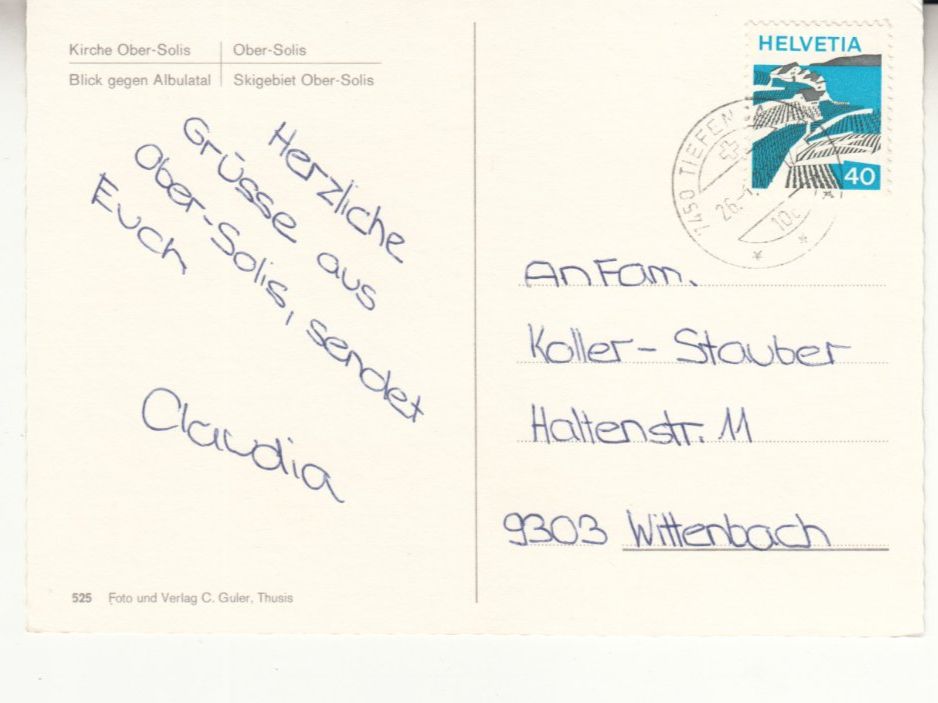 Kirche Ober-Solis
Ober-Solis
Blick gegen Albulatal
Skigebiet Ober-Solis
Herzliche
Grüsse aus
Ober-Solis, sendet
Euch
Claudia
525 Foto und Verlag C. Guler, Thusis
HELVETIA
40
7450 TIEFEN
26.
An Fam.
Koller-Stauber
Haltenstr. 11
9303 Wittenbach